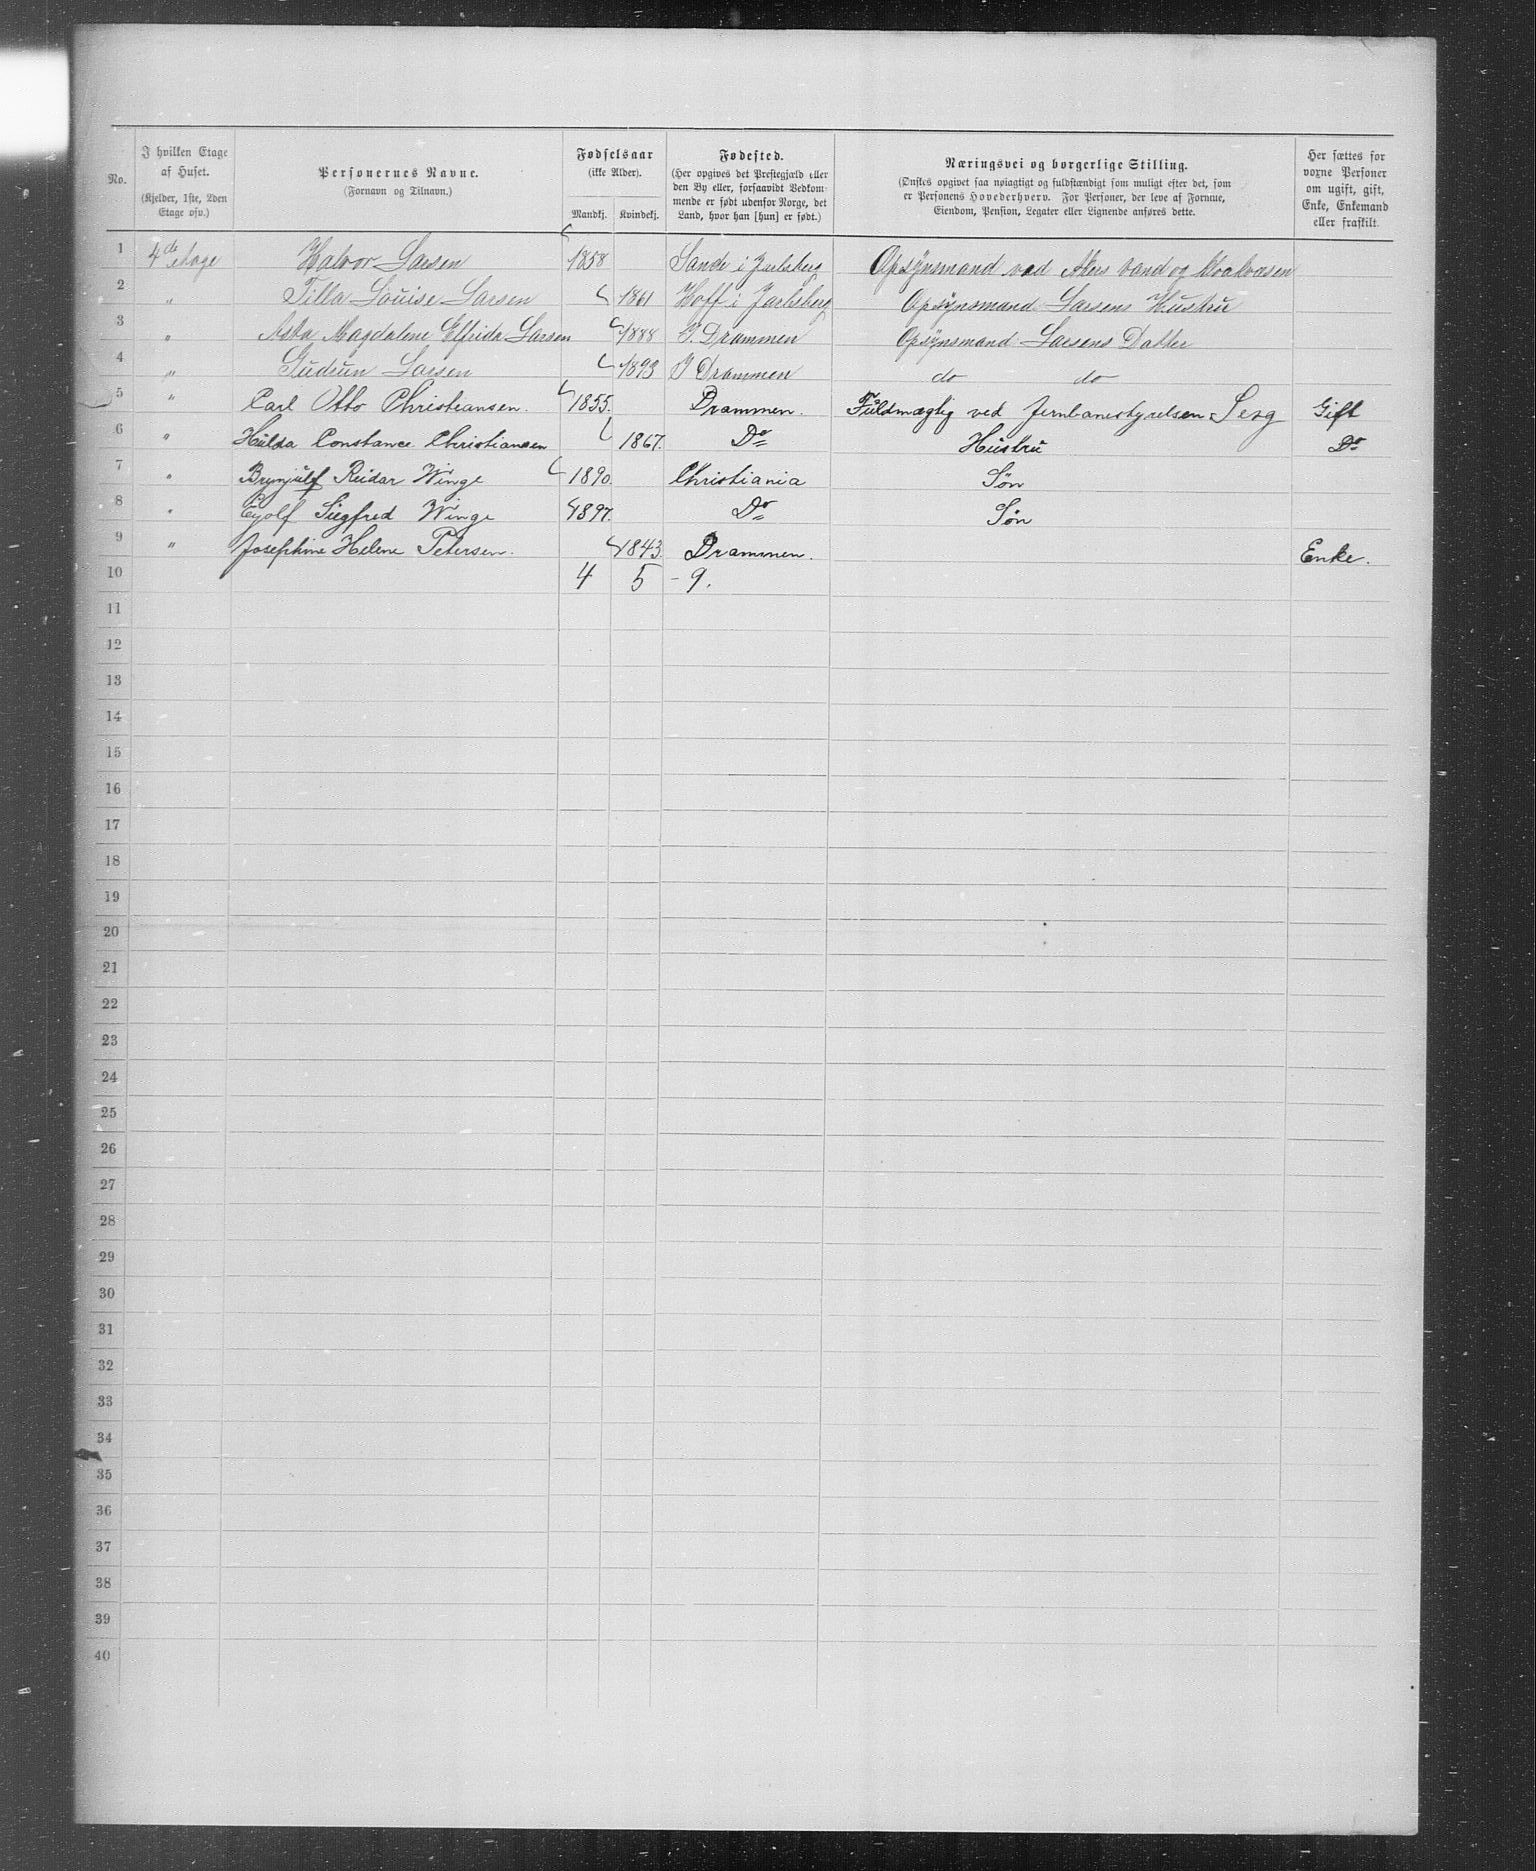 No. I hvilken Etage af Huset. (Kjelder, 1ste, 2den Etage osv.) Personernes Navne. (Fornavn og Tilnavn.) Fødselsaar (ikke Alder). Mandkj. Kvindekj. Fødested. (Her opgives det Prestegjæld eller den By eller, forsaavidt Vedkommende er født udenfor Norge, det Land, hvor han [hun] er født.) Næringsvei og borgerlige Stilling. (Ønskes opgivet saa nøiagtigt og fuldstændigt som muligt efter det, som er Personens Hovederhverv. For Personer, der leve af Formue, Eiendom, Pension, Legater eller Lignende anføres dette. Her sættes for voxne Personer om ugift, gift, Enke, Enkemand eller fraskilt.
1 4de Etage Halvor Larsen 1858 Sande i Jarlsberg Opsynsmand ved Akers Vand og Kloakvæsen
2 " Tilla Louise Larsen 1861 Hoff i Jarlsberg Opsynsmand Larsens Hustru
3 " Asta Magdalene Elfrida Larsen 1888 I. Drammen Opsynsmand Larsens Datter
4 " Gudrun Larsen 1893 I Drammen do do
5 " Carl Otto Christiansen. 1855. Drammen. Fuldmægtig ved Jernbanestyrelsen Gift
6 " Hulda Constance Christiansen 1867. Do Hustru Do
7 " Brynjulf Reidar Winge 1890 Christiania Søn
8 " Eyolf Siegfred Winge 1897. Do Søn
9 " Josephine Helene Petersen. 1843. Drammen. Enke.
10 4 5 - 9.
11
12
13
14
15
16
17
18
19
20
21
22
23
24
25
26
27
28
29
30
31
32
33
34
35
36
37
38
39
40